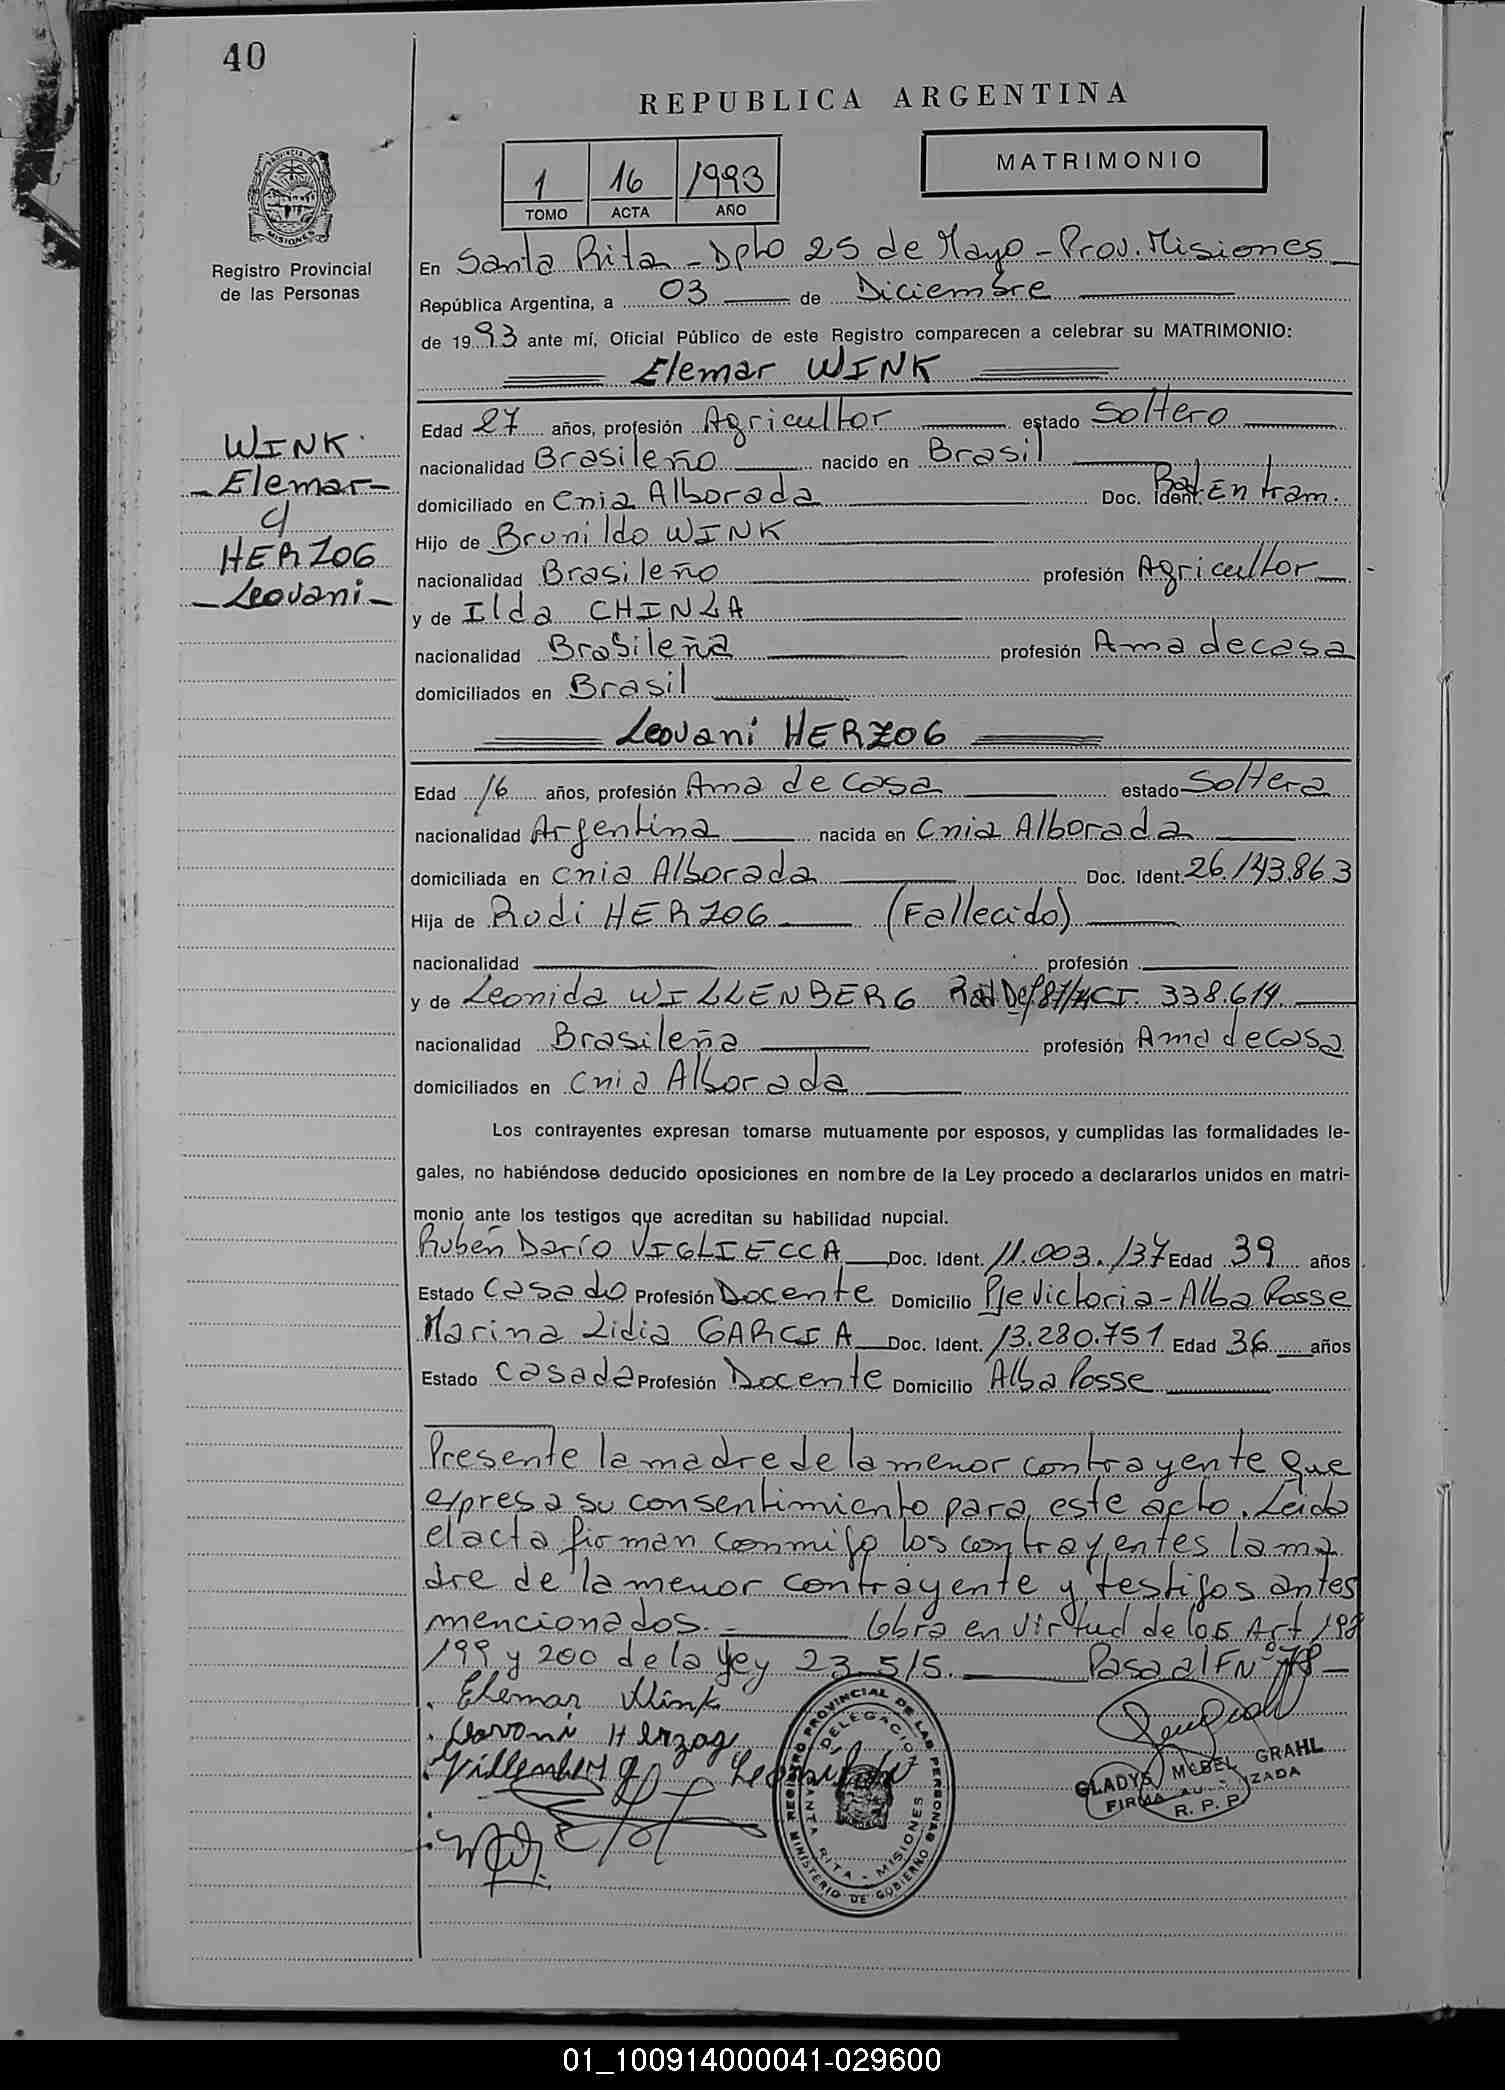 40
REPUBLICA ARGENTINA
MATRIMONIO
1 16 1993
TOMO ACTA AÑO
PROVINCIA DE MISIONES
Registro Provincial
de las Personas
En Santa Rita - Dpto 25 de Mayo - Prov. Misiones
República Argentina, a 03 de Diciembre
de 1993 ante mí, Oficial Público de este Registro comparecen a celebrar su MATRIMONIO:
Elemar WINK
WINK
- Elemar -
c/
HERZOG
- Leovani -
Edad 27 años, profesión Agricultor estado Soltero
nacionalidad Brasileño nacido en Brasil
domiciliado en Cnia Alborada Doc. Ident. Rad. En tram.
Hijo de Brunildo WINK
nacionalidad Brasileño profesión Agricultor
y de Ilda CHINLA
nacionalidad Brasileña profesión Ama de casa
domiciliados en Brasil
Leovani HERZOG
Edad 16 años, profesión Ama de casa estado Soltera
nacionalidad Argentina nacida en Cnia Alborada
domiciliada en Cnia Alborada Doc. Ident. 26.143.863
Hija de Rudi HERZOG (Fallecido)
nacionalidad profesión
y de Leonida WILLENBERG Rad Def CI. 338.614
nacionalidad Brasileña profesión Ama de casa
domiciliados en Cnia Alborada
Los contrayentes expresan tomarse mutuamente por esposos, y cumplidas las formalidades le-
gales, no habiéndose deducido oposiciones en nombre de la Ley procedo a declararlos unidos en matri-
monio ante los testigos que acreditan su habilidad nupcial.
Rubén Darío VIGLIECCA Doc. Ident. 11.003.137 Edad 39 años
Estado Casado Profesión Docente Domicilio Pje Victoria - Alba Posse
Marina Lidia GARCIA Doc. Ident. 13.280.751 Edad 36 años
Estado Casada Profesión Docente Domicilio Alba Posse
Presente la madre de la menor contrayente que
expresa su consentimiento para este acto. Leida
el acta firman conmigo los contrayentes la ma
dre de la menor contrayente y testigos antes
mencionados. Cobra en virtud de los Art 198
199 y 200 de la Ley 23.515. Pasa al F Nº
Elemar Wink
Leovani Herzog
Willenberg Leonida
REGISTRO PROVINCIAL DE LAS PERSONAS
DELEGACION
SANTA RITA - MISIONES
MINISTERIO DE GOBIERNO
GLADYS MABEL GRAHL
FIRMA AUTORIZADA
R. P. P.
01_100914000041-029600